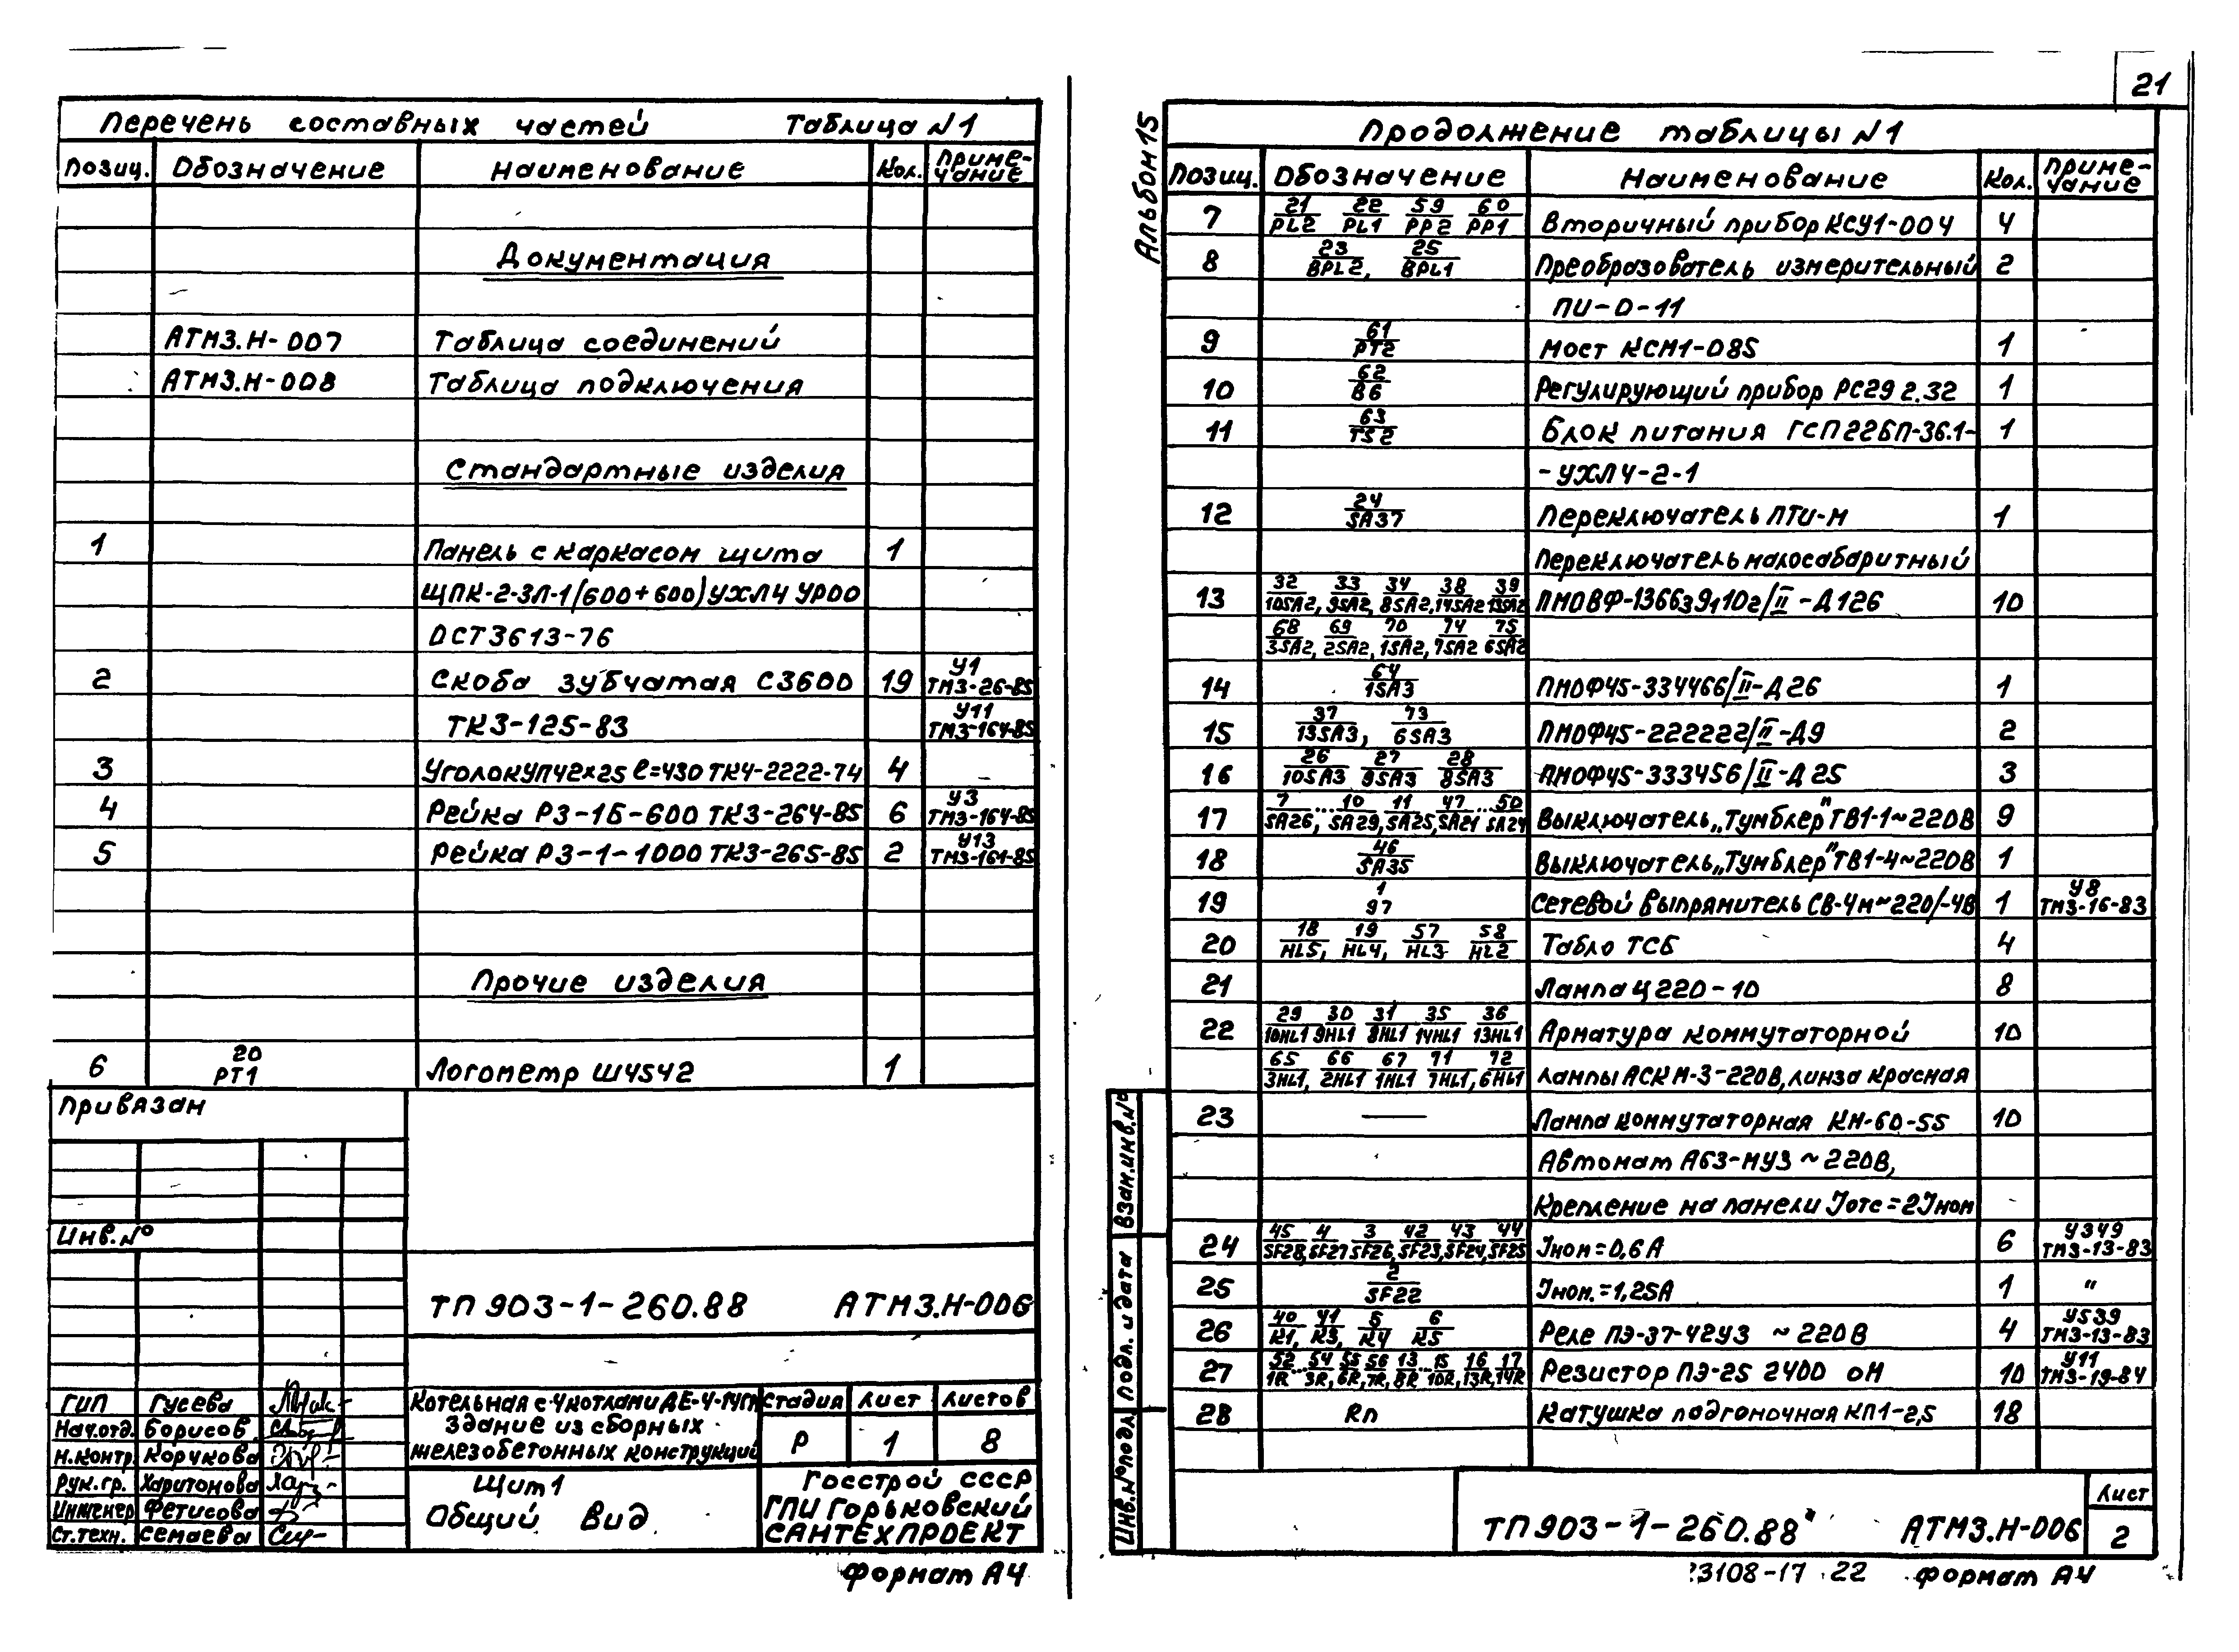 Перечень составных частей Таблица N1
Позиц. Обозначение Наименование Кол. Примечание
Документация
АТМ3.Н-007 Таблица соединений
АТМ3.Н-008 Таблица подключения
Стандартные изделия
1 Панель с каркасом щита 1
ЩПК-2-ЗЛ-1/(600+600)УХЛ4 УР00
ОСТ3613-76
2 Скоба зубчатая С3600 19 У1 ТМ3-26-85
ТК3-125-83 У11 ТМ3-164-85
3 Уголок УП42х25 ℓ=430 ТК4-2222-74 4 –
4 Рейка Р3-1Б-600 ТК3-264-85 6 У3 ТМ3-164-85
5 Рейка Р3-1-1000 ТК3-265-85 2 У13 ТМ3-161-85
Прочие изделия
6 20/РТ1 Логометр Ш4542 1
Привязан
Инв.N°
ТП 903-1-260.88 АТМ3.Н-006
ГИП Гусева
Нач.отд. Борисов
Н.контр. Корчкова
Рук.гр. Харитонова
Инженер Фетисова
Ст.техн. Семаева
Котельная с 4 котлами ДЕ-4-14ГМ
Здание из сборных
железобетонных конструкций
Стадия Лист Листов
Р 1 8
Щит 1
Общий вид
Госстрой СССР
ГПИ Горьковский
САНТЕХПРОЕКТ
Формат А4
21
Альбом 15
Продолжение таблицы N1
Позиц. Обозначение Наименование Кол. Примечание
7 21/PL2 22/PL1 59/PP2 60/PP1 Вторичный прибор КСУ1-004 4
8 23/BPL2, 25/BPL1 Преобразователь измерительный 2
ПИ-О-11
9 61/PT2 Мост КСМ1-085 1
10 62/B6 Регулирующий прибор РС29 2.32 1
11 63/TS2 Блок питания ГСП22БП-36.1- 1
-УХЛ4-2-1
12 24/SA37 Переключатель ПТИ-М 1
Переключатель малосабаритный
13 32/10SA2, 33/9SA2, 34/8SA2, 38/14SA2 39/13SA2 ПМОВФ-136639,10г/II-Д126 10
68/3SA2, 69/2SA2, 70/1SA2, 74/7SA2 75/6SA2
14 64/1SA3 ПМОФ45-334466/II-Д26 1
15 37/13SA3, 73/6SA3 ПМОФ45-222222/II-Д9 2
16 26/10SA3 27/9SA3 28/8SA3 ПМОФ45-333456/II-Д25 3
17 7/SA26, ... 10/SA29, 11/SA25, 47/SA21 ... 50/SA24 Выключатель „Тумблер" ТВ1-1~220В 9
18 46/SA35 Выключатель „Тумблер" ТВ1-4~220В 1
19 1 97 Сетевой выпрямитель СВ-4м~220/-4В 1 У8 ТМ3-16-83
20 18/HL5, 19/HL4, 57/HL3 58/HL2 Табло ТСБ 4
21 Лампа Ц 220-10 8
22 29/10HL1 30/9HL1 31/8HL1 35/14HL1 36/13HL1 Арматура коммутаторной 10
65/3HL1, 66/2HL1 67/1HL1 71/7HL1, 72/6HL1 лампы АСКМ-3-220В, линза красная
23 — Лампа коммутаторная КМ-60-55 10
Автомат А63-МУЗ ~220В,
Крепление на панели Jотс=2Jном
24 45/SF28, 4/SF27 3/SF26, 42/SF23, 43/SF24, 44/SF25 Jном=0,6А 6 У349 ТМ3-13-83
25 2/SF22 Jном.=1,25А 1 "
26 40/K1, 41/K3, 5/K4 6/K5 Реле ПЭ-37-42У3 ~220В 4 У539 ТМ3-13-83
27 52/1R...54/3R, 55/6R, 56/7R, 13/8R...15/10R, 16/13R, 17/14R Резистор ПЭ-25 2400 ом 10 У11 ТМ3-19-84
28 Rп Катушка подгоночная КП1-2,5 18
Взам.инв.N°
Подп. и дата
Инв.N°подл.
ТП 903-1-260.88 АТМ3.Н-006
Лист
2
23108-17 22 Формат А4